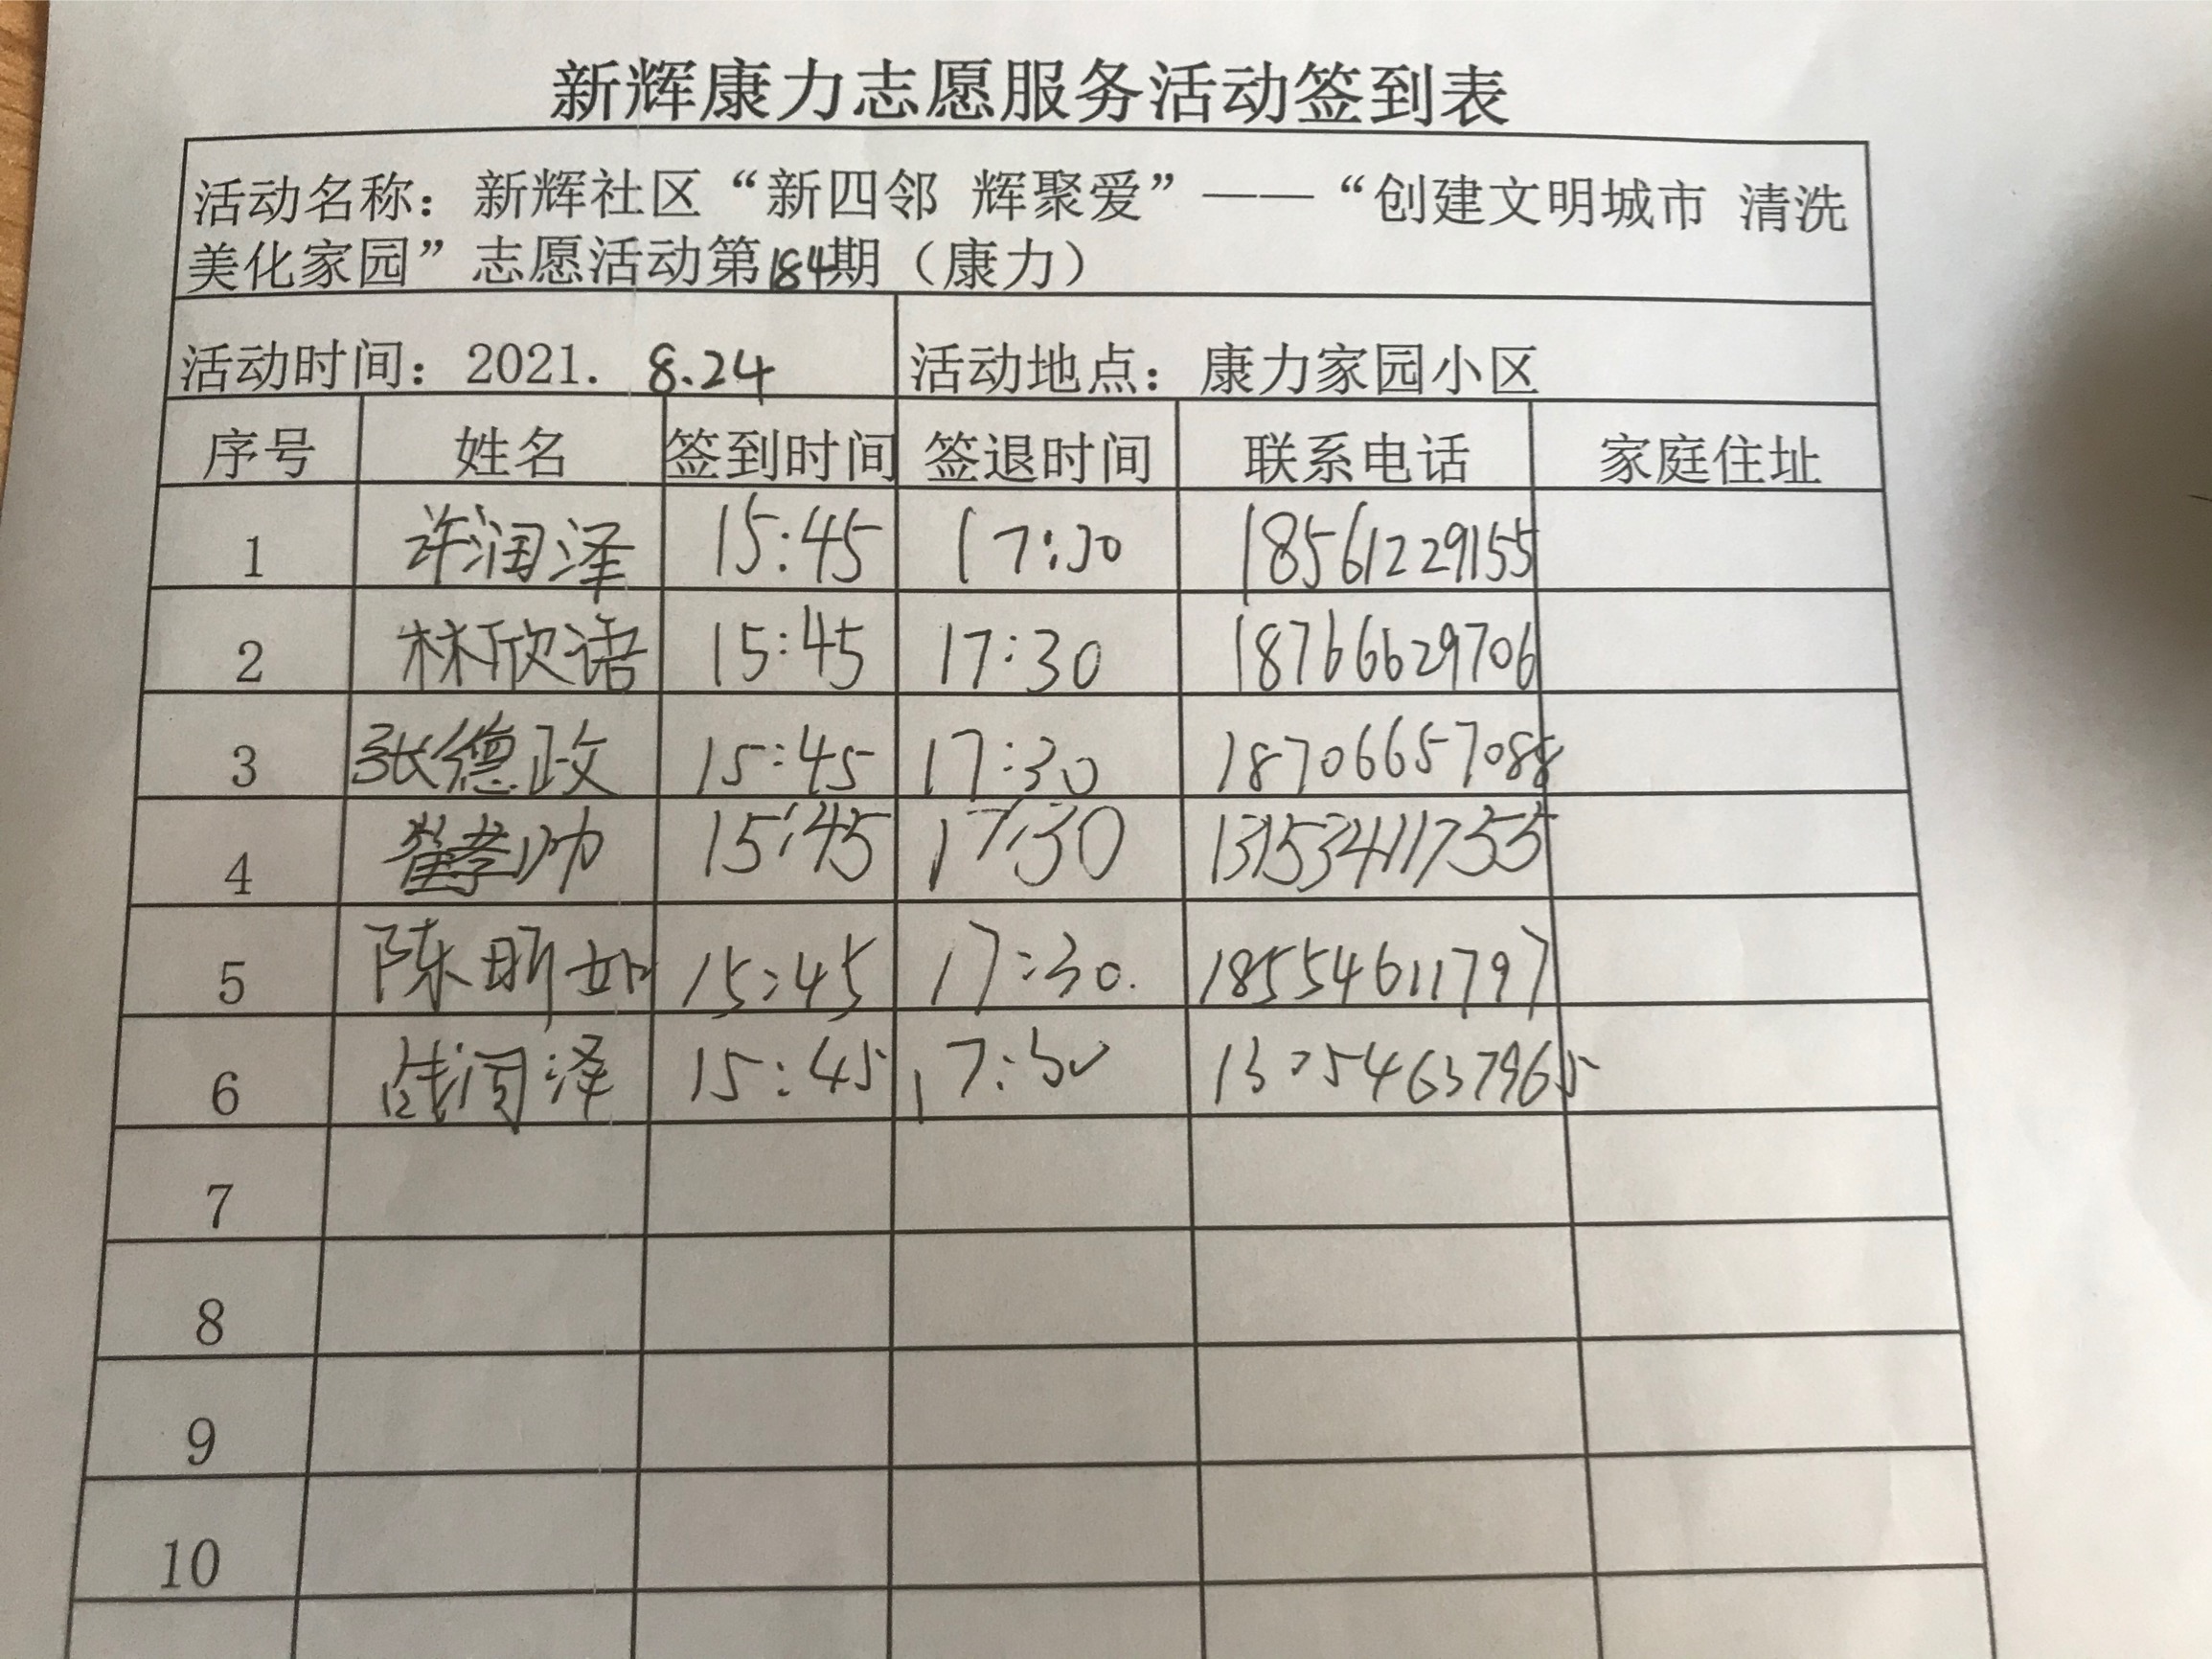 新辉康力志愿服务活动签到表
活动名称：新辉社区“新四邻 辉聚爱”——“创建文明城市 清洗
美化家园”志愿活动第184期（康力）
活动时间：2021. 8.24 活动地点：康力家园小区
序号 姓名 签到时间 签退时间 联系电话 家庭住址
1 许润泽 15:45 17:30 18561229155
2 林欣语 15:45 17:30 18766629706
3 张德政 15:45 17:30 18706657088
4 15:45 17:30 13153411755
5 陈明如 15:45 17:30. 18554611797
6 战润泽 15:45 17:30
7
8
9
10